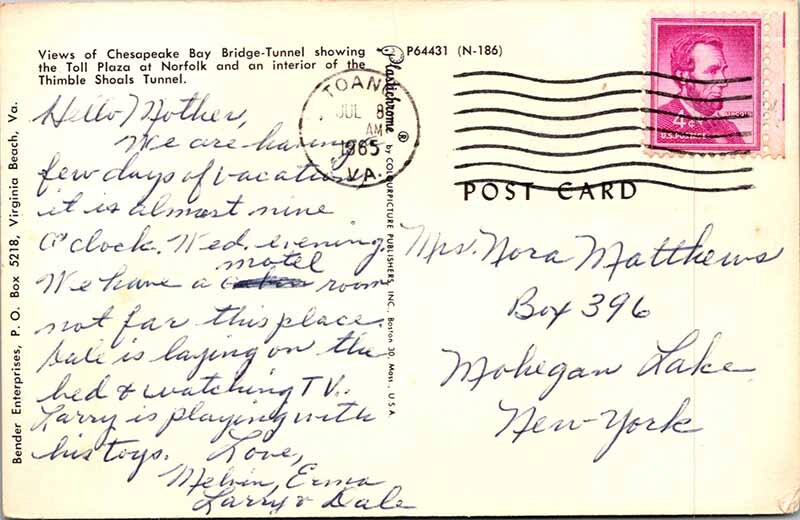 Views of Chesapeake Bay Bridge-Tunnel showing
the Toll Plaza at Norfolk and an interior of the
Thimble Shoals Tunnel.
Hello Mother,
We are having
few days of vacation,
it is almost nine
O'clock. Wed. evening.
motel
We have a room
not far this place.
Dale is laying on the
bed & watching TV..
Larry is playing with
his toys. Love,
Melvin, Erma
Larry & Dale
Bender Enterprises, P. O. Box 5218, Virginia Beach, Va.
Plastichrome ® by COLOURPICTURE PUBLISHERS, INC., Boston 30, Mass., U.S.A.
P64431 (N-186)
TOANO
JUL 8
AM
1965
VA.
4¢
POST CARD
Mrs. Nora Matthews
Box 396
Mohegan Lake
New-York